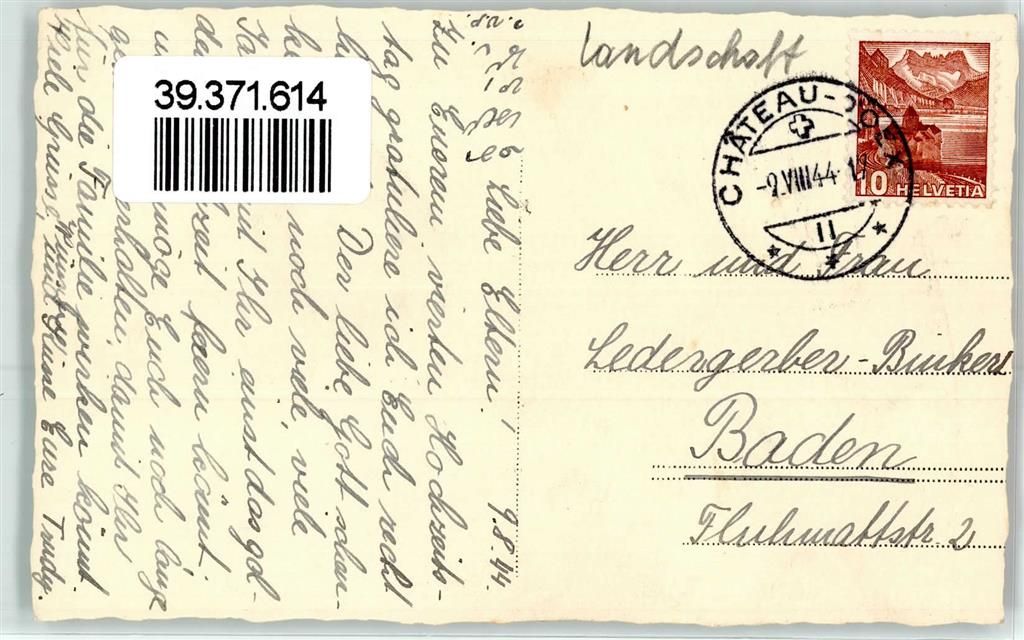 39.371.614
Landschaft
CHÂTEAU-D'OEX
-9.VIII.44
II
10 HELVETIA
Herr und Frau
Ledergerber-Bunkers
Baden
Fluhmattstr. 2
9.8.44.
Liebe Eltern!
Zu Eurem werten Hochzeits-
tag gratuliere ich Euch recht
Der liebe Gott schen-
noch viele, viele
Ihr einst das gol-
feiern könnt.
möge Euch noch lange
erhalten, damit Ihr
für die Familie wirken könnt
Viele Grüsse, Eure Trudy.